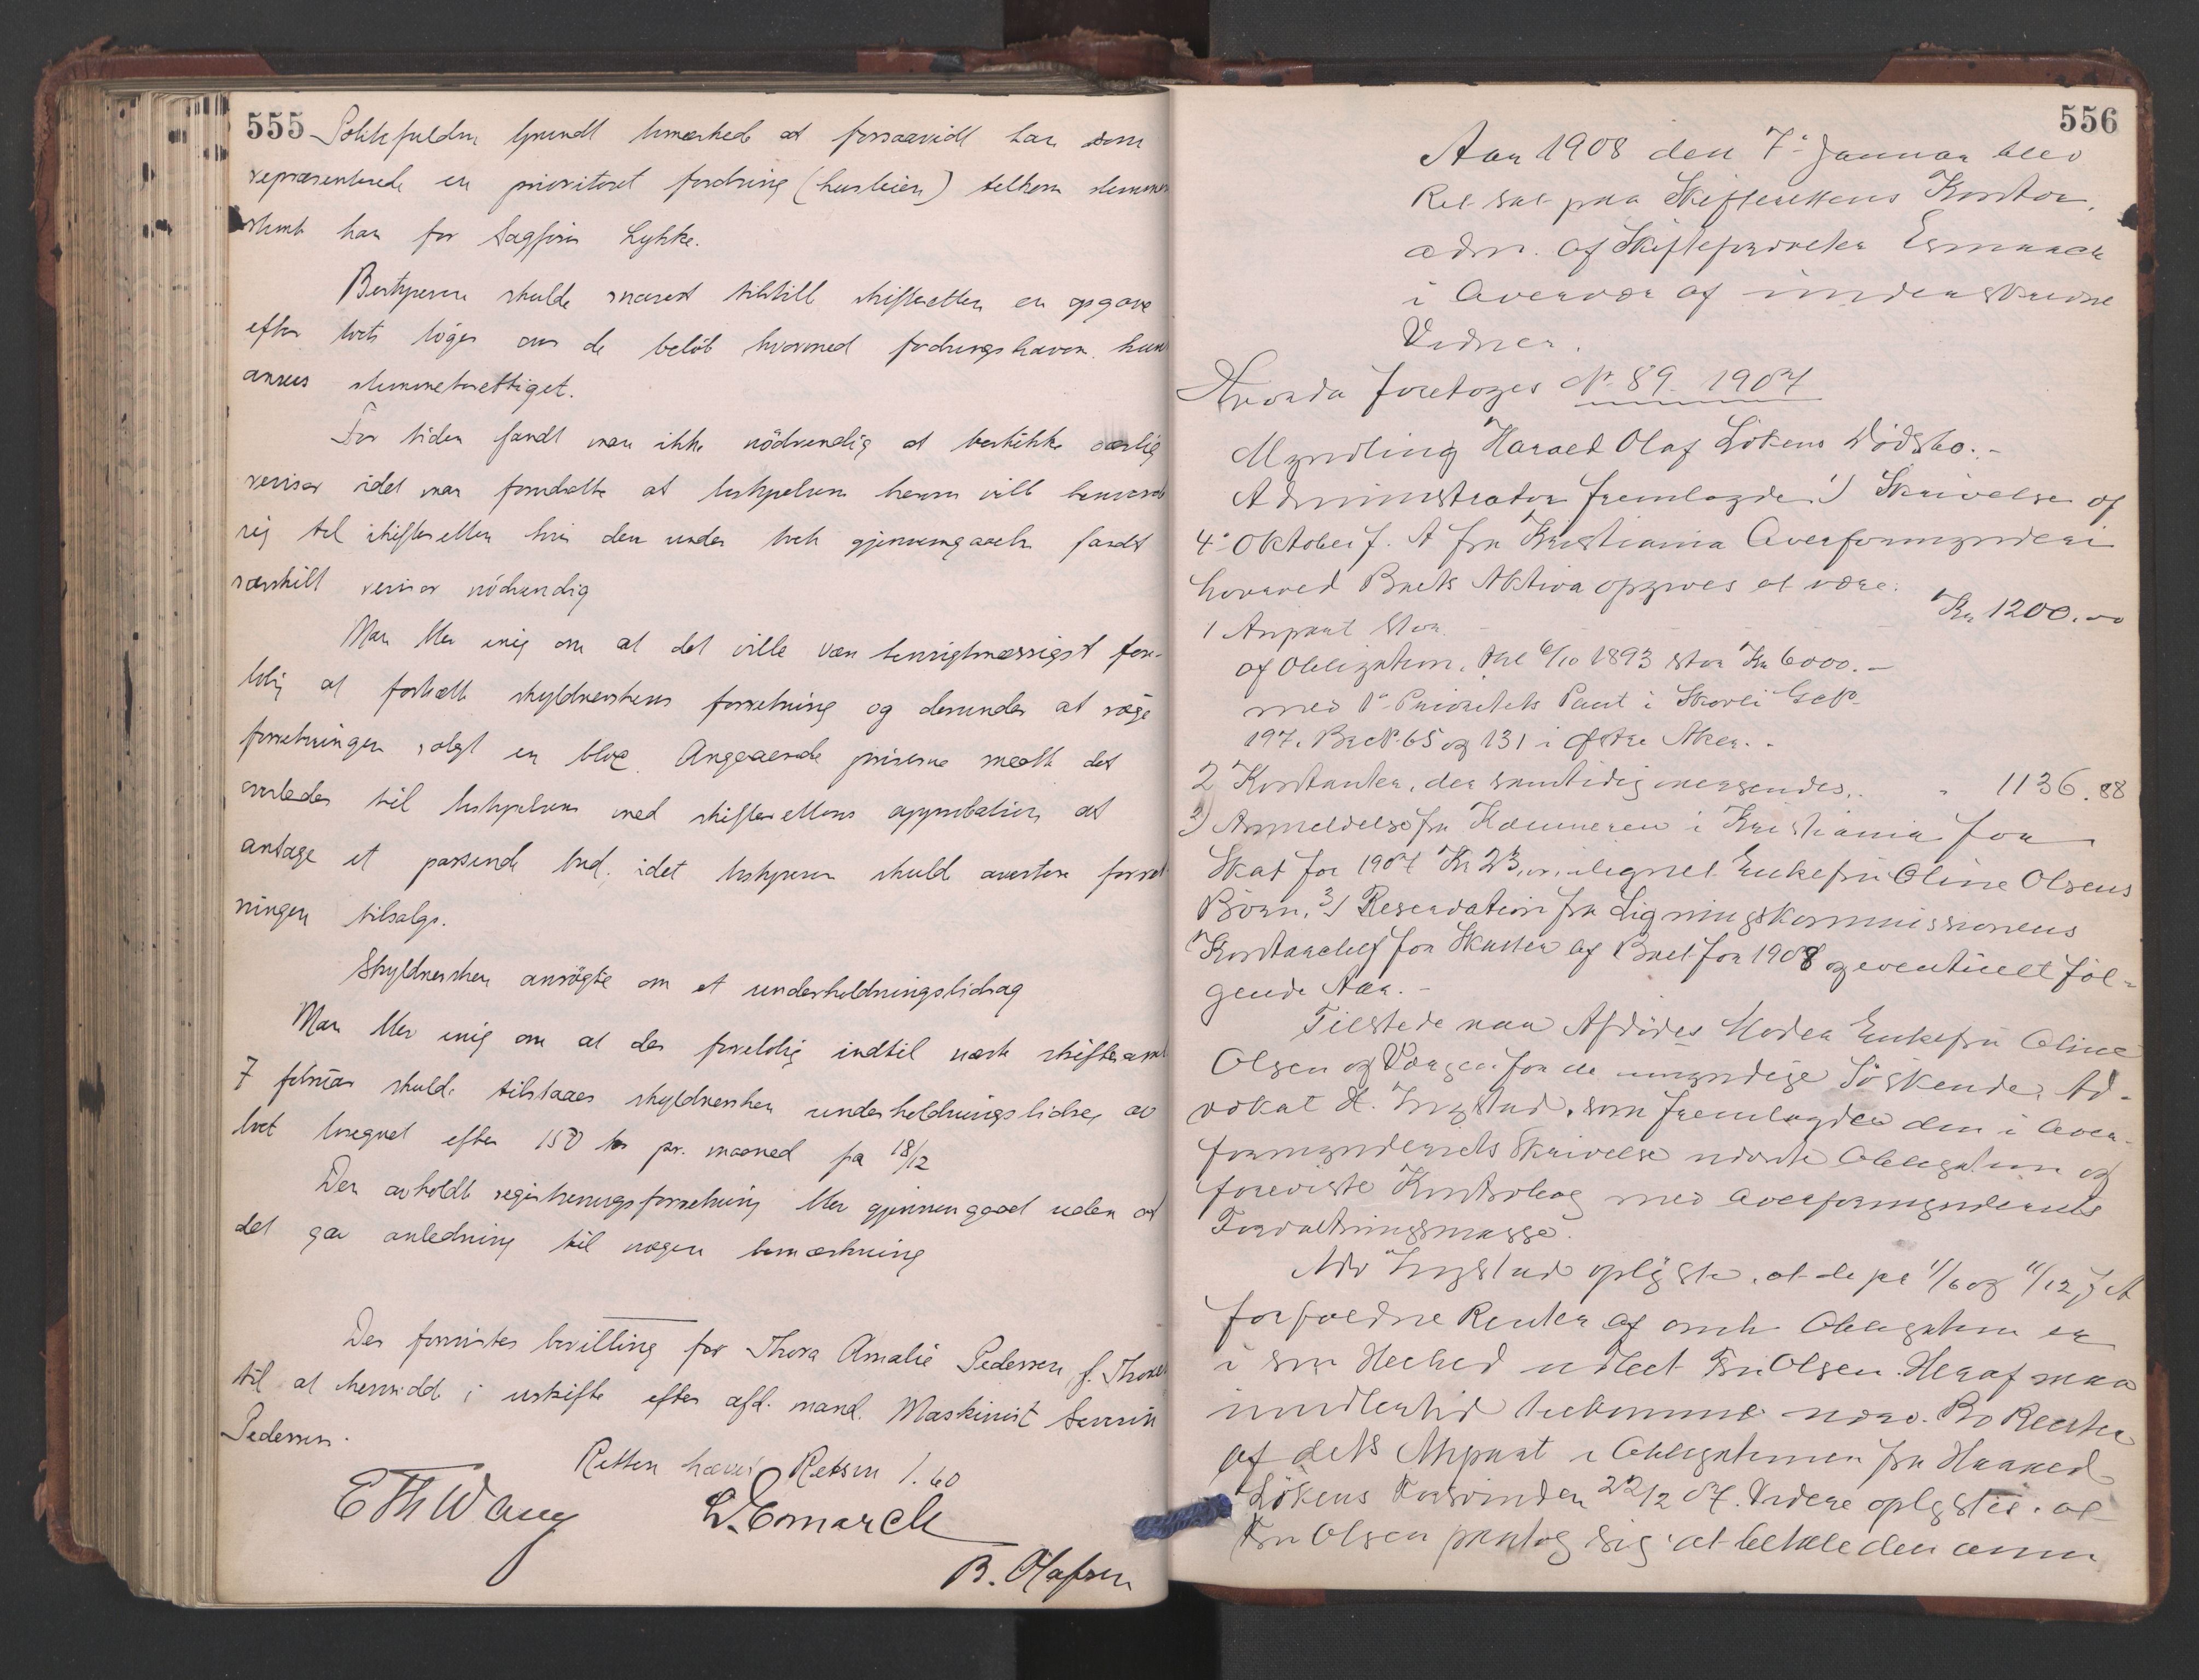 555
Politifuldm. Grundt bemærkede at forsaavidt han som
repræsenterede en prioriteret fordring (husleien)
stemt han for Sagfører Lykke.
Bestyreren skulde snarest tilstille skifteretten en opgave
efter boets bøger over de beløb hvormed fordringshaver kun
ansees stemmeberettiget.
For tiden fandt man ikke nödvendig at beskikke særlig
revisor idet man forudsatte at bestyrelsen herom vilde henvende
sig til skifteretten hvis den under boets gjennemgaaelse fandt
særskilt revisor nödvendig
Man blev enig om at det vilde være hensigtmæssigst fore-
løbig at fortsætte skyldnerskens forretning og derunder at søge
forretningen solgt en bloc. Angaaende priserne maatte det
overlades til bestyrelsen med skifterettens approbation at
antage et passende bud, idet bestyreren skulde avertere forret
ningen tilsalgs.
Skyldnersken ansögte om et underholdningsbidrag
Man blev enig om at der foreløbig indtil næste skiftesaml
7 februar skulde tilstaaes skyldnersken underholdningsbidrag av
boet beregnet efter 150 kr pr. maaned fra 18/12
Den avholdte registreringsforretning blev gjennemgaaet uden at
det gav anledning til nogen bemærkning
Der forevistes bevilling for Thora Amalie Pedersen f. Thor
til at hensidde i uskifte efter afd. mand Maskinist Severin
Pedersen.
Retten hævet Retsm 1.60
E Th Wang L. Esmarch
B. Olafsen
556
Aar 1908 den 7. Januar blev
Ret sat paa Skifterettens Kontor,
adm. af Skifteforvalter Esmarch
i Overvær af underskrevne
Vidner.
Hvorda foretoges No 89 1907
Myndling Harald Olaf Lökens Dödsbo.-
Administrator fremlagde 1) Skrivelse af
4. Oktober f. A fra Kristiania Overformynderi
hvorved Boets Aktiva opgives at være:
1 Anpart stor - Kr 1200.00
af Obligation, dat 6/10 1893 stor Kr 6000.-
med 1. Prioritets Pant i Skovli G No
197. Br No 65 og 131 i Østre Aker. -
2 Kontanter, der samtidig oversendes. " 1136.88
2) Anmeldelse fra Kæmneren i Kristiania for
Skat for 1907 Kr 23, ilignet Enkefru Oline Olsens
Børn. 3) Reservation fra Ligningskommissionens
Kontorchef for Skatter af Boet for 1908 og eventuelt föl-
gende Aar. -
Tilstede var Afdödes Moder Enkefru Oline
Olsen og Værgen for de umyndige Söskende, Ad-
vokat H. som fremlagde den i Over-
formynderiets Skrivelse nævnte Obligation og
foreviste Kontrabog med Overformynderiets
Forvaltningsmasse.
Adv oplyste, at de pr 11/6 og 11/12 f A
forfaldne Renter af omh Obligation er
i sin Helhed udbet Fru Olsen. Heraf maa
imidlertid tilkomme nærv. Bo Renter
af dets Anpart i Obligationen fra Harald
Lökens 22/2 07. Videre oplystes, at
Fru Olsen paatog sig at betale den